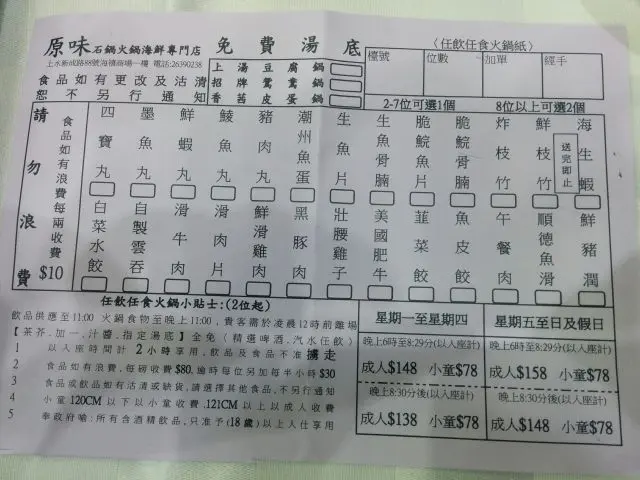 原味石鍋火鍋海鮮專門店 免費湯底
上水新成路88號海禧商場一樓 電話:26390238
食品如有更改及沽清
恕不另行通知
上湯豆腐鍋
招牌鴛鴦鍋
香茜皮蛋鍋
〈任飲任食火鍋紙〉
檯號 位數 加單 經手
2-7位可選1個 8位以上可選2個
請勿浪費
食品如有浪費每兩收費$10
四寶丸
墨魚丸
鮮蝦丸
鯪魚丸
豬肉丸
潮州魚蛋
生魚片
生魚骨腩
脆鯇魚片
脆鯇魚骨腩
炸枝竹
鮮枝竹
海生蝦
送完即止
白菜水餃
自製雲吞
滑牛肉
滑肉片
鮮滑雞肉
黑豚肉
壯腰雞子
美國肥牛
韮菜餃
魚皮餃
午餐肉
順德魚滑
鮮豬潤
任飲任食火鍋小貼士:(2位起)
飲品供應至11:00 火鍋食物至晚上11:00, 貴客需於凌晨12時前離場
【茶芥.加一.汁醬.指定湯底】全免 (精選啤酒.汽水任飲)
1 以入座時間計 2小時享用, 飲品及食品不准攜走
2 食品如有浪費, 每磅收費$80. 逾時每位另加每半小時$30
3 食品或飲品如有沽清或缺貨, 請選擇其他食品, 不另行通知
4 小童120CM 以下以小童收費.121CM以上以成人收費
5 奉政府喻:所有含酒精飲品, 只准予(18歲)以上人仕享用
星期一至星期四 星期五至日及假日
晚上6時至8:29分(以入座計) 晚上6時至8:29分(以入座計)
成人$148 小童$78 成人$158 小童$78
晚上8:30分後(以入座計) 晚上8:30分後(以入座計)
成人$138 小童$78 成人$148 小童$78